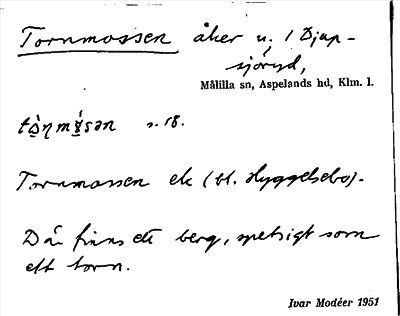 Tornmossen åker u. / Djup-
sjöryd,
Målilla sn, Aspelands hd, Klm. l.
s. 18.
Tornmossen ek (bl. Hyggelsebo).
Där finns ett berg, spetsigt som
ett torn.
Ivar Modéer 1951